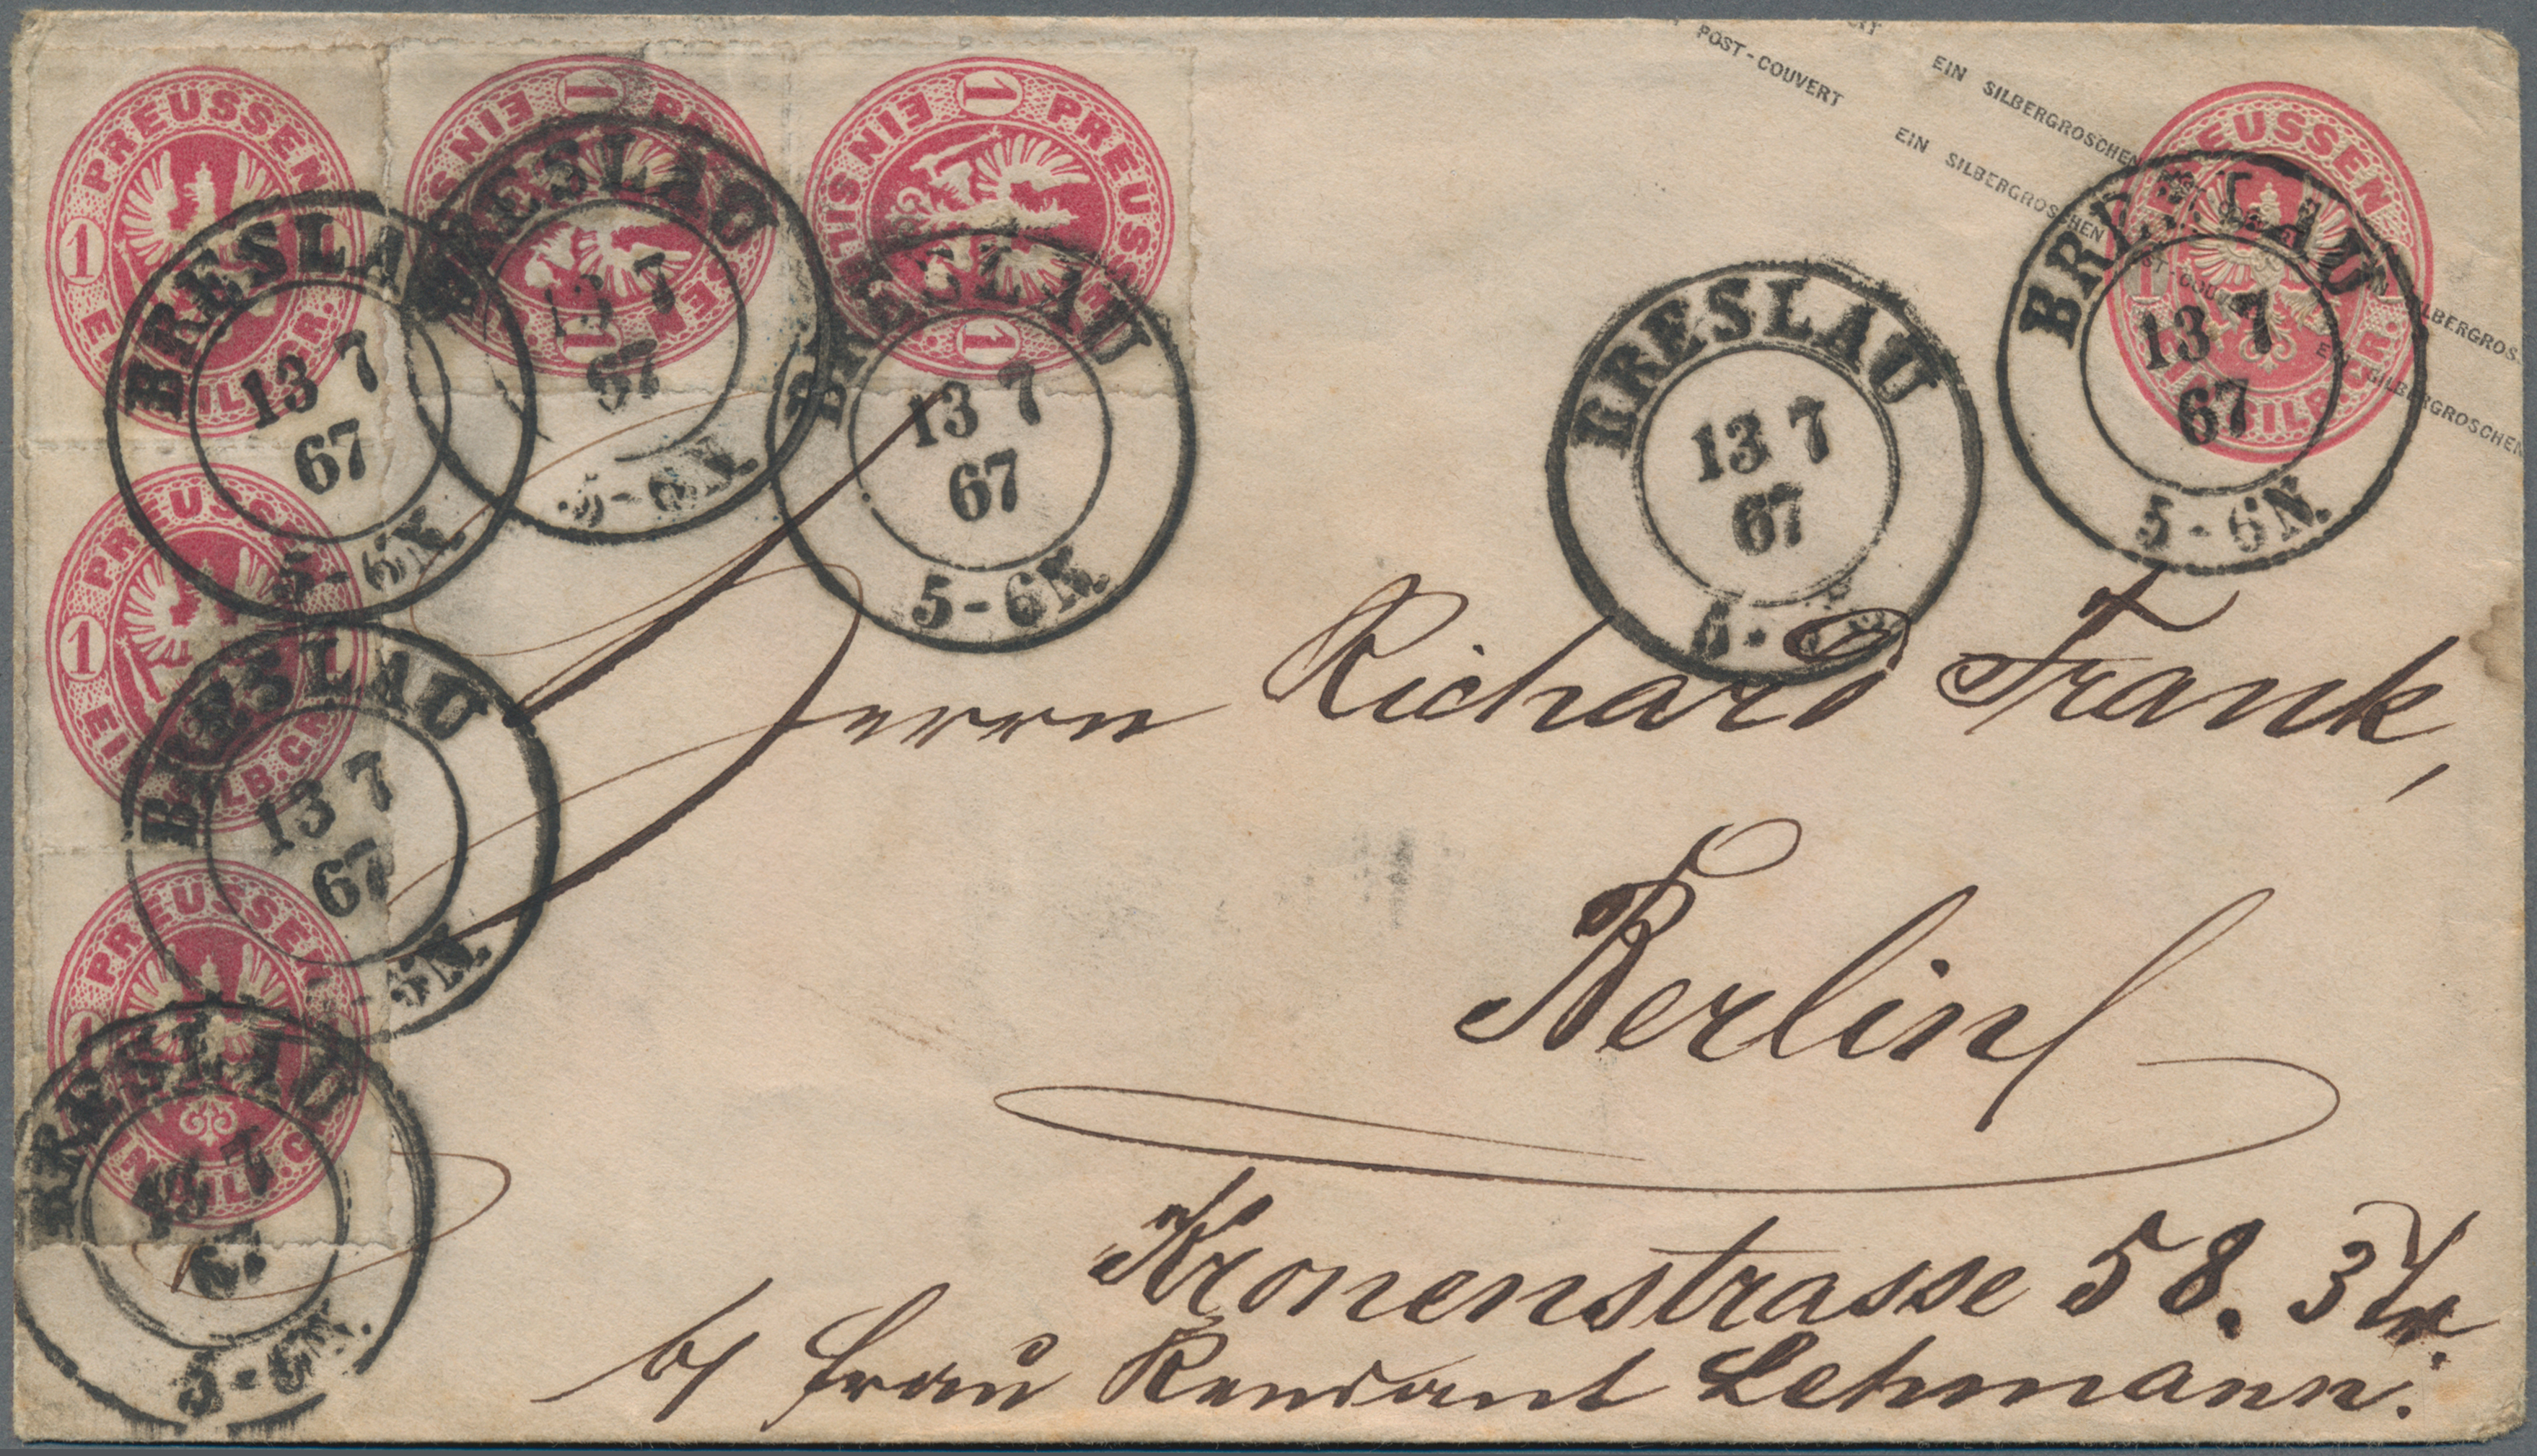 PREUSSEN 1 EIN SILBGR.
EIN 1 PREUSSEN
SILB EIN 1 PREUSSEN 1
POST-COUVERT EIN SILBERGROSCHEN
EIN SILBERGROSCHEN POST-COUVERT EIN SILBERGROSCHEN
EIN SILBERGROSCHEN
PREUSSEN 1 EIN SILBGR.
BRESLAU 13 7 67 5-6N.
BRESLAU 13 7 67 5-6N.
BRESLAU 13 7 67 5-6N.
BRESLAU 13 7 67
BRESLAU 13 7 67 5-6N.
PREUSSEN 1 EIN SILB.GR
BRESLAU 13 7 67 5-6N.
PREUSSEN 1 EIN SILB.G
BRESLAU 13 7 67 5-6N.
Herrn Richard Frank,
Berlin
Kronenstrasse 58. 3 Tr.
b/ Frau Rendant Lehmann.